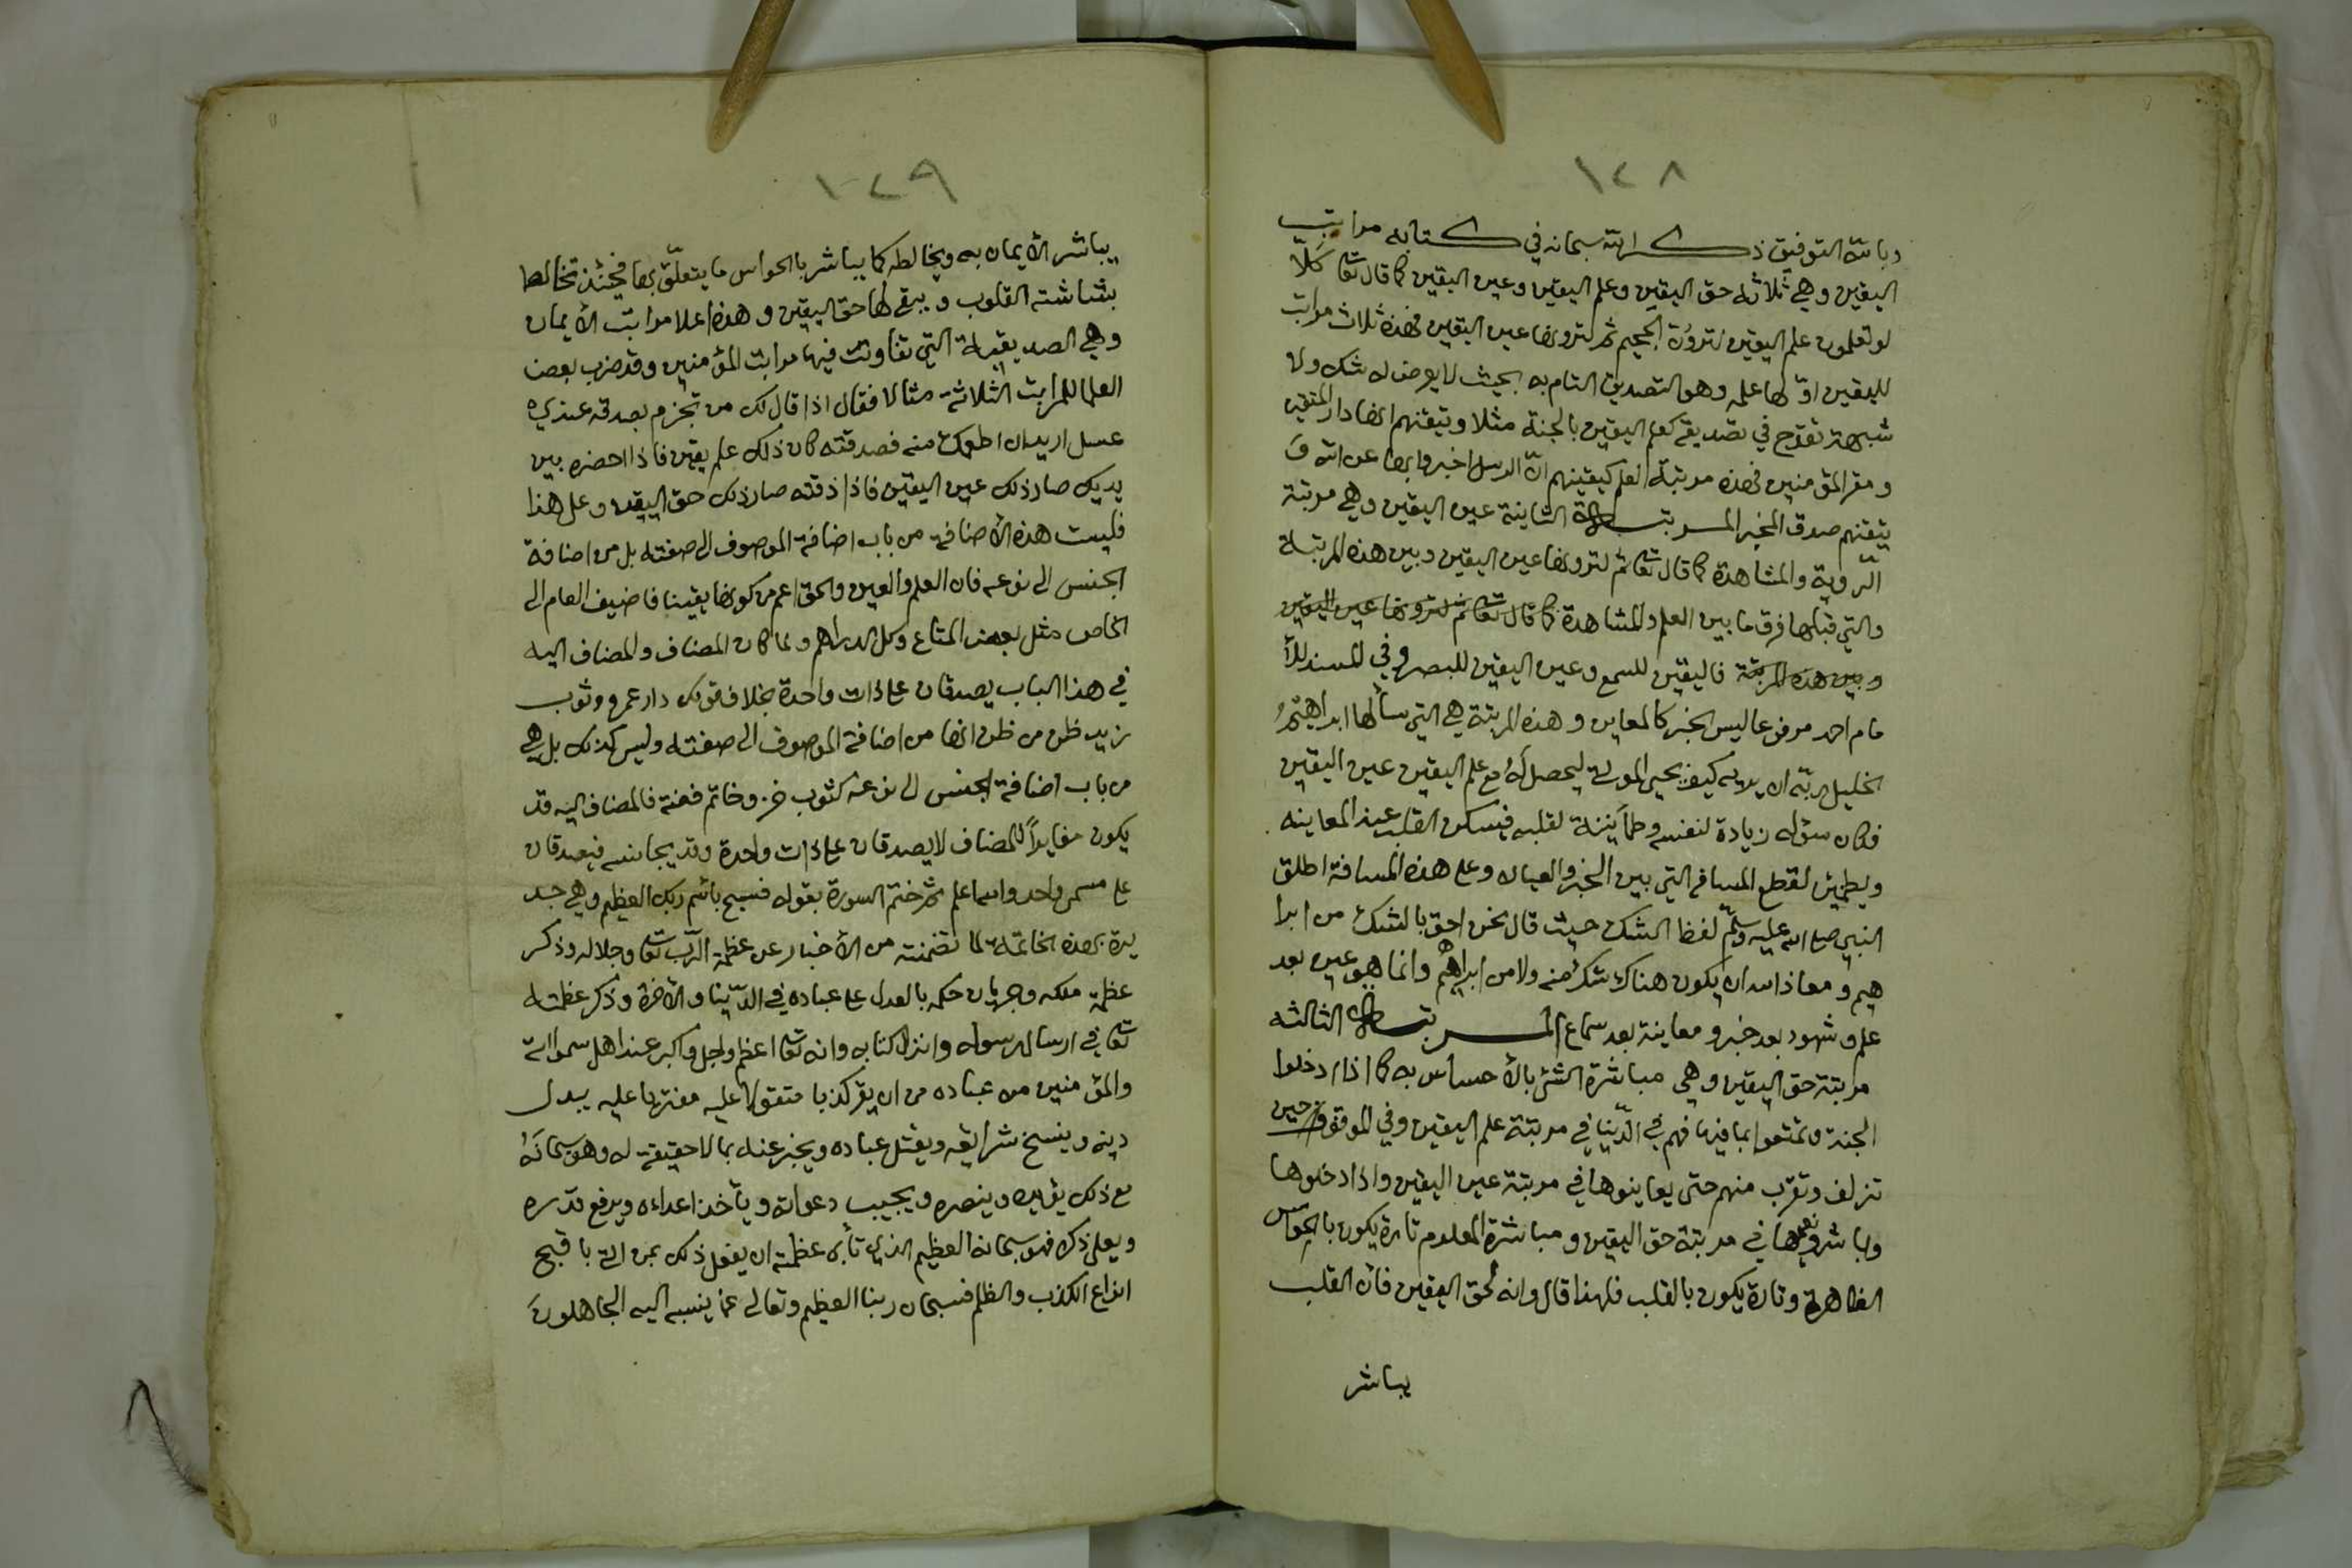 ١٢٨
وبالله التوفيق ذكر الله سبحانه في كتابه مراتب
اليقين وهي ثلاثه حق اليقين وعلم اليقين وعين اليقين كما قال تعا كلّا
لو تعلمون علم اليقين لترونّ الجحيم ثم لترونها عين اليقين فهذه ثلاث مراتب
لليقين اوّلها علمه وهو التصديق التام به بحيث لا يعرض له شك ولا
شبهة تقدح في تصديقه كعلم اليقين بالجنة مثلا وتيقنهم انها دار المتقين
ومقر المؤمنين فهذه مرتبة العلم كيقينهم انّ الرسل اخبروا بها عن الله وَ
تيقنهم صدق المخبر المرتبة الثانية عين اليقين وهي مرتبة
الرّوية والمشاهدة كما قال تعا ثم لترونها عين اليقين وبين هذه المرتبة
والتي قبلها فرق ما بين العلم والمشاهدة كما قال تعا ثم لترونها عين اليقين
وبين هذه المرتبة فاليقين للسمع وعين اليقين للبصر وفي المسند للأ
مام احمد مرفوعا ليس الخبر كالمعاين وهذه المرتبة هي التي سألها ابراهيمُ
الخليل ربّه ان يريه كيف يحيي الموتى ليحصل لهُ مع علم اليقين عين اليقين
فكان سؤله زيادة لنفسه وطمأنينة لقلبه فيسكن القلب عند المعاينه
ويطمئن لقطع المسافه التي بين الخبر والعيان وعلى هذه المسافة اطلق
النبي صلى الله عليه وسلّم لفظ الشك حيث قال نحن احق بالشك من ابرا
هيم ومعاذ الله ان يكون هناك شكٌ منه ولا من ابراهيم وانما هو عين بعد
علم وشهود بعد خبر ومعاينة بعد سماع المرتبة الثالثه
مرتبة حق اليقين وهي مباشرة الشئ بالأحساس به كما اذا دخلوا
الجنة وتمتعوا بما فيها فهم في الدّنيا في مرتبة علم اليقين وفي الموقف حين
تزلف وتقرّب منهم حتى يعاينوها في مرتبة عين اليقين واذا دخلوها
وباشروا نعيمها في مرتبة حق اليقين ومباشرة المعلوم تارة يكون بالحواس
الظاهرة وتارة يكون بالقلب فلهذا قال وانه لحق اليقين فأن القلب
يباشر
١٢٩
يباشر الأيمان به ويخالطه كما يباشر بالحواس ما يتعلّق بها فحينئذ تخالط
بشاشته القلوب ويبقى لها حق اليقين وهذه اعلا مراتب الأيمان
وهي الصديقية التي تفاوتت فيها مراتب المؤمنين وقد ضرب بعض
العلما للمراتب الثلاثة مثالا فقال اذا قال لك من تجزم بصدقه عندي
عسل اريد ان اطعمك منه فصدقته كان ذلك علم يقين فاذا احضره بين
يديك صار ذلك عين اليقين فاذا ذقته صار ذلك حق اليقين وعلى هذا
فليست هذه الأضافة من باب اضافة الموصوف الى صفته بل من اضافة
الجنس الى نوعه فان العلم والعين والحق اعم من كونها يقينا فاضيف العام الى
الخاص مثل بعض المتاع وكل الدراهم ولما كان المضاف والمضاف اليه
في هذا الباب يصدقان على ذات واحدة بخلاف قولك دار عمرو وثوب
زيد ظن من ظن انها من اضافة الموصوف الى صفته وليس كذلك بل هي
من باب اضافة الجنس الى نوعه كثوب خز وخاتم فضة فالمضاف اليه قد
يكون مغايراً للمضاف لا يصدقان على ذات واحدة وقد يجانسه فيصدقان
على مسمى واحد والله اعلم ثم ختم السورة بقوله فسبح باسم ربك العظيم وهي جد
يرة بهذه الخاتمة لما تضمنته من الأخبار عن عظمة الرّب تعا وجلاله وذكر
عظمة ملكه وجريان حكمه بالعدل على عباده في الدّنيا والأخرة وذكر عظمته
تعا في ارسال رسوله وانزال كتابه وانه تعا اعظم واجل واكبر عند اهل سمواته
والمؤمنين من عباده من ان يقر كذبا متقولا عليه مفتريا عليه يبدل
دينه وينسخ شرايعه ويقتل عباده ويخبر عنه بما لا حقيقة له وهو سبحانهُ
مع ذلك يؤيده وينصره ويجيب دعواته ويأخذ اعداءه ويرفع قدره
ويعلي ذكره فهو سبحانه العظيم الذي تأبى عظمته ان يفعل ذلك بمن اتى باقبح
انواع الكذب والظلم فسبحان ربنا العظيم وتعالى عمّا ينسبه اليه الجاهلونَ